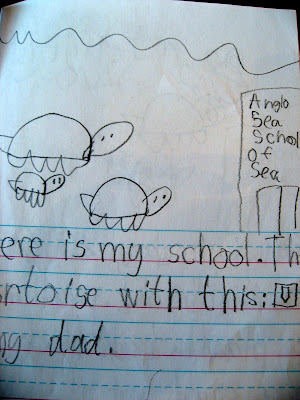 Anglo
Sea
School
Of
Sea
ere is my school. Th
rtoise with this:
ng dad.